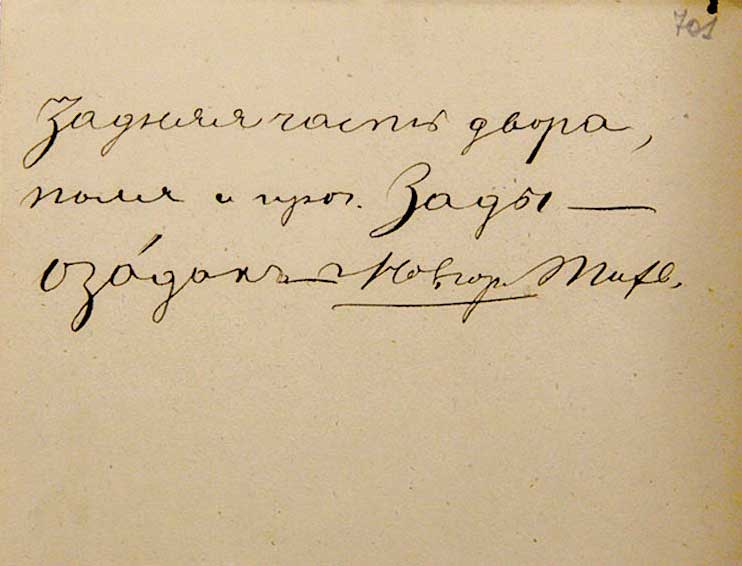 701
Задняя часть двора,
поля и проч. Зады —
оза́докъ — Новгор. Тихв.